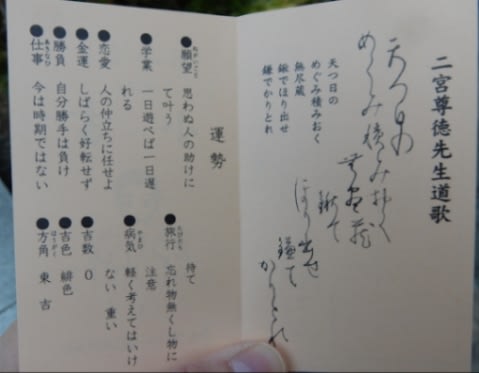 二宮尊徳先生道歌
天つ日の
めくみ積みおく
無尽蔵
鍬て
ほり出せ
鎌て
かりとれ
天つ日の
めぐみ積みおく
無尽蔵
鍬でほり出せ
鎌でかりとれ
運勢
●願望 思わぬ人の助けに
て叶う
●学業 一日遊べば一日遅
れる
●恋愛 人の仲立ちに任せよ
●金運 しばらく好転せず
●勝負 自分勝手は負け
●仕事 今は時期ではない
待て
●旅行 忘れ物無くし物に
注意
●病気 軽く考えてはいけ
ない 重い
●吉数 0
●吉色 緋色
●方角 東 吉